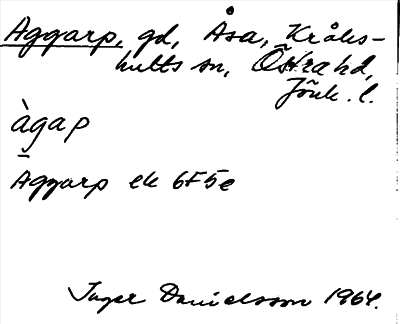 Aggarp, gd, Åsa, Kråks-
hults sn, Östra hd,
Jönk. l.
àgap
Aggarp ek 6F5e
Inger Danielsson 1964.